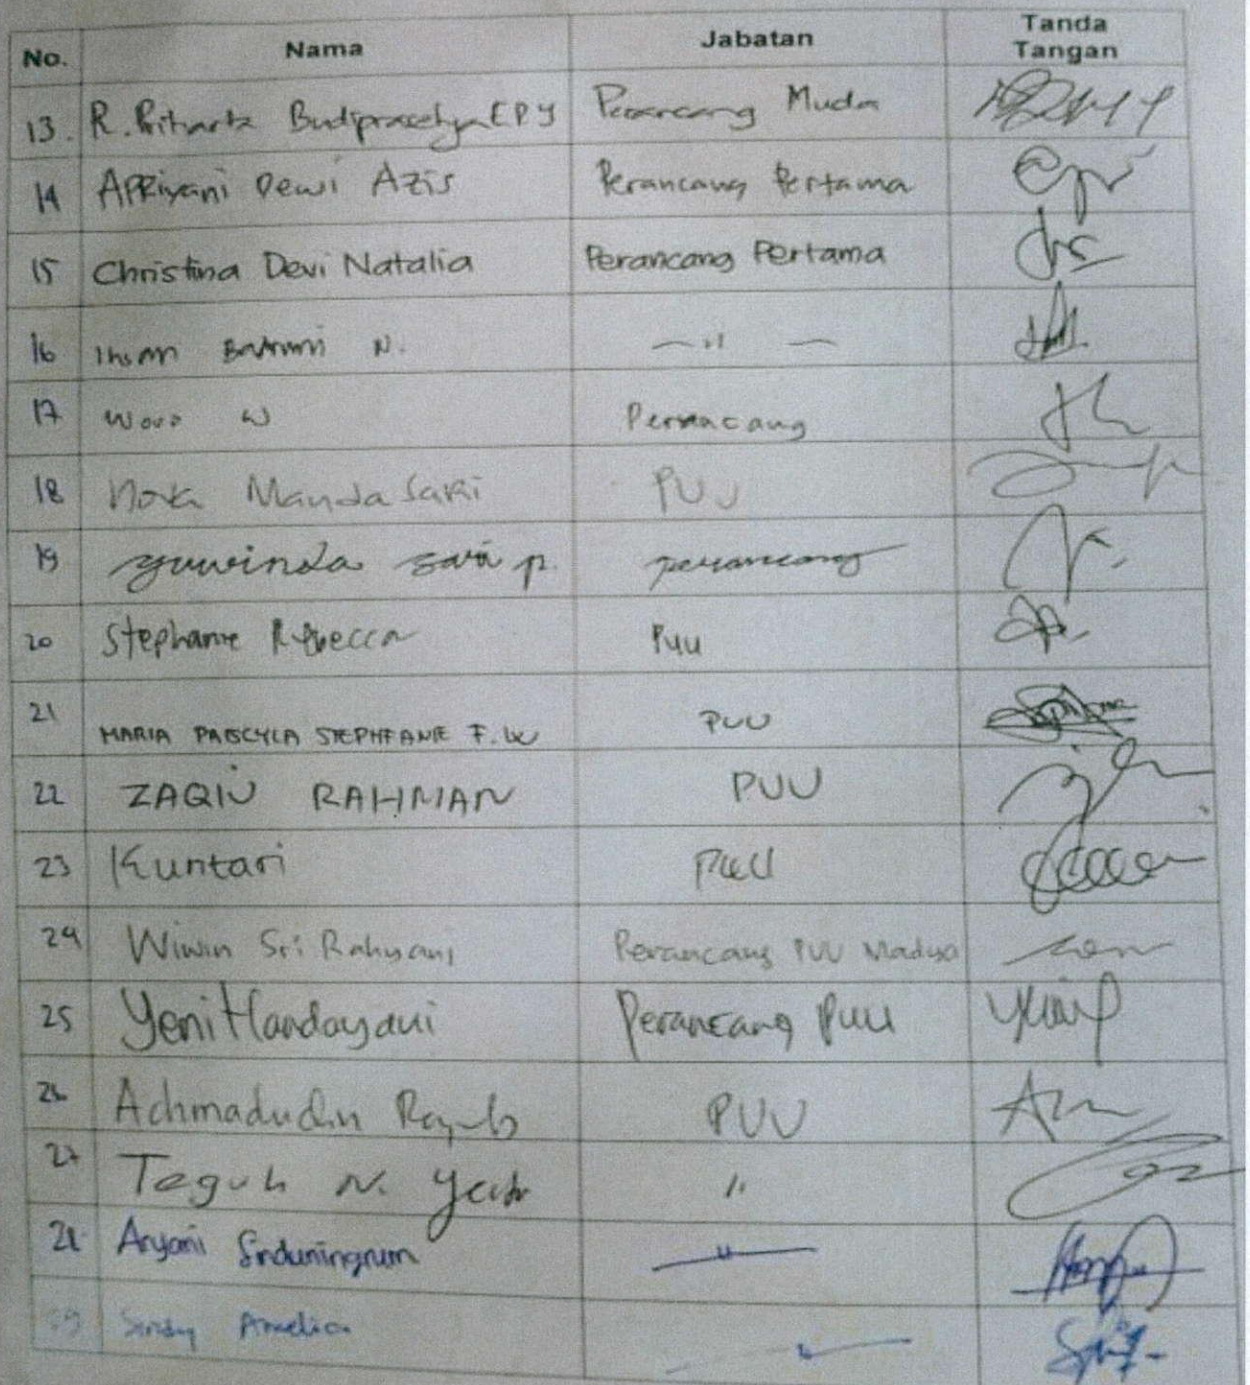 No. Nama Jabatan Tanda Tangan
13. R. Budiprasetya EPY Perancang Muda
14 APRiyani Dewi Azis Perancang Pertama
15 Christina Devi Natalia Perancang Pertama
16 Ihsan N. — " —
17 Woro W Perancang
18 Nova Manda Sari PUU
19 yuwinda sari p. perancang
20 Stephanie Rebecca Puu
21 MARIA PRISCYLA STEPHFANIE F. W PUU
22 ZAQIU RAHMAN PUU
23 Kuntari PUU
24 Wiwin Sri Rahyani Perancang PUU Madya
25 Yeni Handayani Perancang PUU
26 Achmadudin Rajab PUU
27 Teguh N. "
28 Aryani Sinduningrum — " —
29 Sindy Amelia — " —